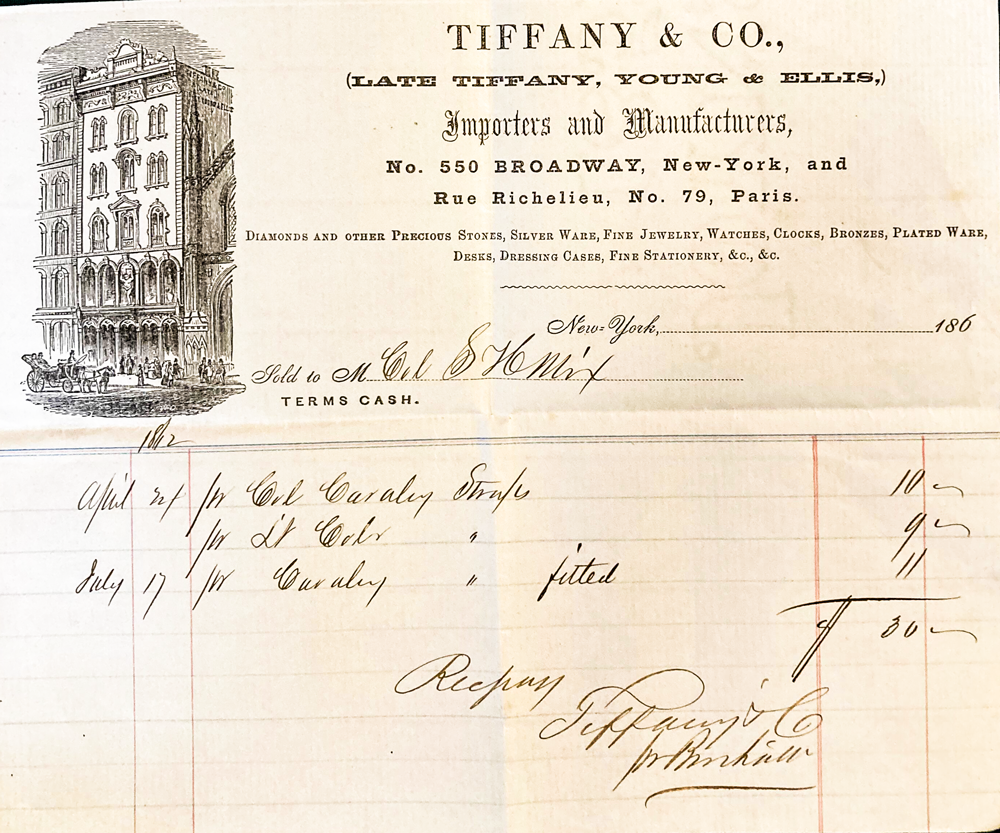 TIFFANY & CO.,
(LATE TIFFANY, YOUNG & ELLIS,)
Importers and Manufacturers,
No. 550 BROADWAY, New-York, and
Rue Richelieu, No. 79, Paris.
DIAMONDS AND OTHER PRECIOUS STONES, SILVER WARE, FINE JEWELRY, WATCHES, CLOCKS, BRONZES, PLATED WARE,
DESKS, DRESSING CASES, FINE STATIONERY, &C., &C.
New-York, 186
Sold to M Col S H Mix
TERMS CASH.
1862
April 24 pr Col Cavalry Straps 10
pr Lt Cols " 9
July 17 pr Cavalry " fitted 11
$ 30
Rec pay
Tiffany & Co
pr